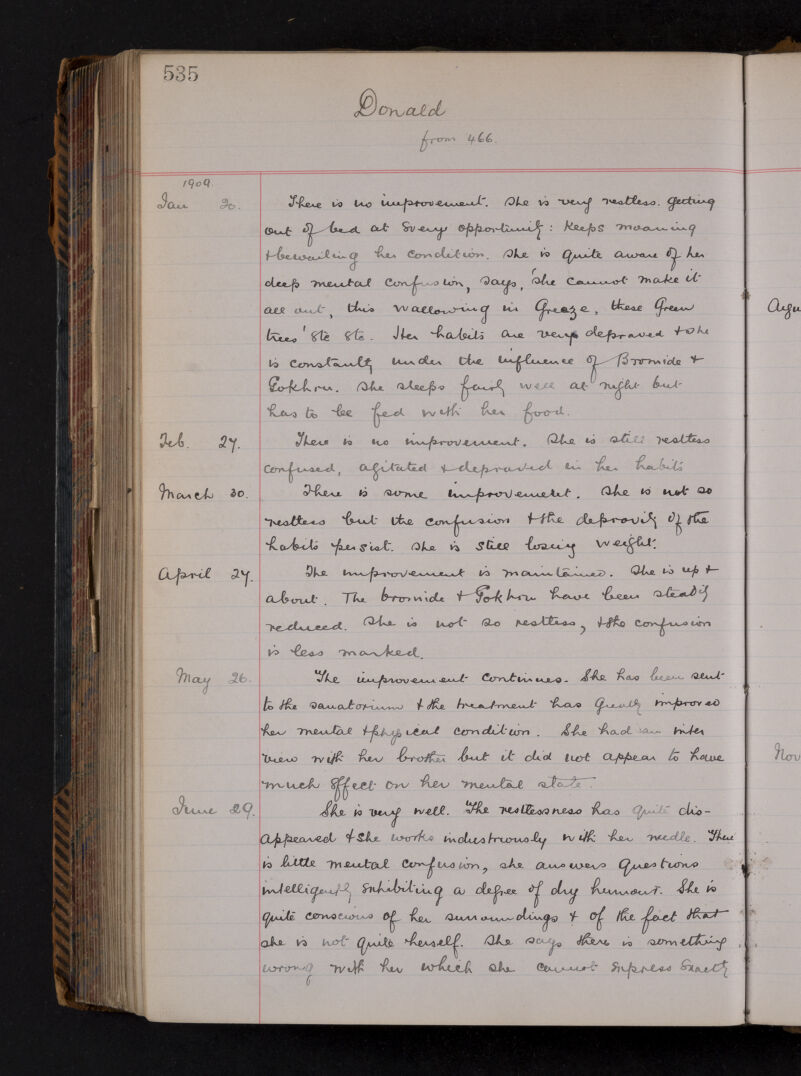 535
Donald
from 466.
1909.
Jan 20. There is no improvement. She is very restless. getting
out of bed at every opportunity: keeps moaning
& bewailing her condition. She is quite aware of her
deep mental confusion, says, 'she cannot make it
all out, this wallowing in Greaze, these Green
trees' etc etc. Her habits are very depraved & she
is constantly under the influence of Bromide &
Gokhru. She sleeps fairly well at night but
has to be fed with her food.
Feb. 27. There is no improvement. She is still restless
confused, agitated & depraved in her habits
March 30. There is some improvement. She is not so
restless but the confusion & the depravity of the
habits persist. She is still losing weight.
April 27. The improvement is maintained. She is up &
about. The bromide & Gokhru have been steadily
reduced. She is not so restless, & the confusion
is less marked.
May 26. The improvement continues. She has been sent
to the sanatorium & the treatment has greatly improved
her mental & physical condition. She had an inter
view with her brother but it did not appear to have
much effect on her mental state.
June 29. She is very well. The restlessness has quite dis-
appeared & she works industriously with her needle. There
is little mental confusion, she answers questions
intelligently exhibiting a degree of dry humour. She is
quite conscious of her surroundings & of the fact that
she is not quite herself. She says there is something
wrong with her which she cannot express exactly
Augu
Nov